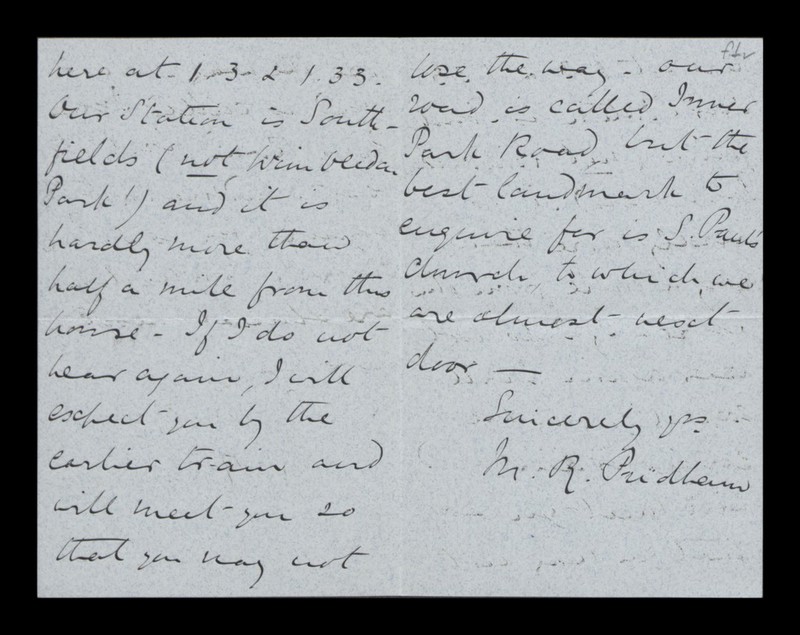 here at 1.3 2 1.33.
Our Station is South-
fields (not Wimbledon
Park!) and it is
hardly more than
half a mile from this
house - If I do not
hear again, I will
expect you by the
earlier train and
will meet you so
that you may not
lose the way - our
road is called Inner
Park Road, but the
best landmark to
enquire for is S. Paul's
Church, to which we
are almost next
door —
Sincerely yrs.
M. R. Pridham